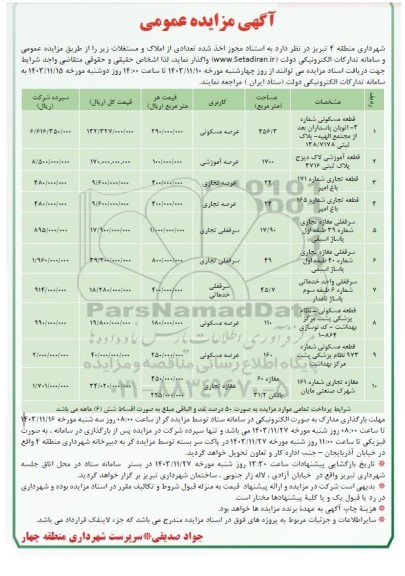 آگهی مزایده عمومی
شهرداری منطقه ۴ تبریز در نظر دارد به استناد مجوز اخذ شده تعدادی از املاک و مستغلات زیر را از طریق مزایده عمومی
و سامانه تدارکات الکترونیکی دولت (www.Setadiran.ir) واگذار نماید، لذا اشخاص حقیقی و حقوقی متقاضی واجد شرایط
جهت دریافت اسناد مزایده می توانند از روز چهارشنبه مورخه ۱۴۰۳/۱۱/۱۰ تا ساعت ۱۴:۰۰ روز دوشنبه مورخه ۱۴۰۳/۱۱/۱۵ به
سامانه تدارکات الکترونیکی دولت (ستاد ایران) مراجعه نمایند.
ردیف مشخصات مساحت (متر مربع) کاربری قیمت هر متر مربع (ریال) قیمت کل (ریال) سپرده شرکت (ریال)
۱ قطعه مسکونی شماره ۳-اتوبان پاسداران بعد از مجتمع الهیه- پلاک ثبتی ۱۳۸/۷۱۷۸ ۴۵۶/۳ عرصه مسکونی ۲۹۰/۰۰۰/۰۰۰ ۱۳۲/۳۲۷/۰۰۰/۰۰۰ ۶/۶۱۶/۳۵۰/۰۰۰
۲ قطعه آموزشی لاک دیزج پلاک ثبتی ۴۷۱۶ ۱۷۰۰ عرصه آموزشی ۱۰۰/۰۰۰/۰۰۰ ۱۷۰,۰۰۰,۰۰۰,۰۰۰ ۸/۵۰۰/۰۰۰/۰۰۰
۳ قطعه تجاری شماره ۱۷۱ باغ امیر ۲۴ عرصه تجاری ۴۰۰/۰۰۰/۰۰۰ ۹/۶۰۰/۰۰۰/۰۰۰ ۴۸۰/۰۰۰/۰۰۰
۴ قطعه تجاری شماره ۱۶۵ باغ امیر ۲۴ عرصه تجاری ۴۰۰/۰۰۰/۰۰۰ ۹/۶۰۰/۰۰۰/۰۰۰ ۴۸۰/۰۰۰/۰۰۰
۵ سرقفلی مغازه تجاری شماره ۳۹ طبقه اول پاساژ اسبقی ۱۷/۹۰ سرقفلی تجاری ۱/۰۰۰/۰۰۰/۰۰۰ ۱۷/۹۰۰/۰۰۰/۰۰۰ ۸۹۵/۰۰۰/۰۰۰
۶ سرقفلی مغازه تجاری شماره ۴۰ طبقه اول پاساژ اسبقی ۴۹ سرقفلی تجاری ۸۰۰/۰۰۰/۰۰۰ ۳۹/۲۰۰/۰۰۰/۰۰۰ ۱/۹۶۰/۰۰۰/۰۰۰
۷ سرقفلی واحد خدماتی شماره ۶ طبقه سوم پاساژ نامدار ۴۵/۷ سرقفلی خدماتی ۴۰۰/۰۰۰/۰۰۰ ۱۸/۲۸۰/۰۰۰/۰۰۰ ۹۱۴/۰۰۰/۰۰۰
۸ قطعه مسکونی - نظام پزشکی پشت مرکز بهداشت - کد نوسازی ۱-۸۶۴ ۱۱۰ عرصه مسکونی ۱۸۰/۰۰۰/۰۰۰ ۱۹/۸۰۰/۰۰۰/۰۰۰ ۹۹۰/۰۰۰/۰۰۰
۹ قطعه مسکونی شماره ۹۷۳ نظام پزشکی پشت مرکز بهداشت ۱۶۰ عرصه مسکونی ۲۵۰/۰۰۰/۰۰۰ ۴۰/۰۰۰/۰۰۰/۰۰۰ ۲/۰۰۰/۰۰۰/۰۰۰
۱۰ مغازه تجاری شماره ۱۶۱ شهرک صنعتی مایان مغازه ۶۰ بالکن ۳۱/۲ مغازه تجاری ۴۵۰/۰۰۰/۰۰۰ ۲۲۵/۰۰۰/۰۰۰ ۳۴/۰۲۰/۰۰۰/۰۰۰ ۱/۷۰۱/۰۰۰/۰۰۰
شرایط پرداخت تمامی موارد مزایده به صورت ۵۰ درصد نقد و الباقی مبلغ به صورت اقساط شش (۶) ماهه می باشد
مهلت بارگذاری مدارک به صورت الکترونیکی در سامانه ستاد توسط مزایده گر از ساعت ۰۸:۰۰ روز سه شنبه مورخه ۱۴۰۳/۱۱/۱۶
تا ساعت ۰۸:۰۰ روز شنبه مورخه ۱۴۰۳/۱۱/۲۷ می باشد و تنها سپرده شرکت در مزایده پس از بارگذاری در سامانه ، به صورت
فیزیکی تا ساعت ۱۱:۰۰ روز شنبه مورخه ۱۴۰۳/۱۱/۲۷ در پاکت سر بسته توسط مزایده گر به دبیرخانه شهرداری منطقه ۴ واقع
در خیابان آذربایجان – جنب اداره کار و تعاون تحویل خواهد گردید.
* تاریخ بازگشایی پیشنهادات ساعت ۱۳:۳۰ روز شنبه مورخه ۱۴۰۳/۱۱/۲۷ در بستر سامانه ستاد در محل اتاق جلسه
شهرداری تبریز واقع در خیابان آزادی ، لاله زار جنوبی ، ساختمان شهرداری تبریز برگزار خواهد گردید.
* بدیهی است شرکت در مزایده و ارائه پیشنهاد قیمت به منزله قبول شروط و تکالیف مقرر در اسناد مزایده بوده و شهرداری
در رد یا قبول یک و یا کلیۀ پیشنهادها مختار است.
* هزینۀ چاپ آگهی به عهدۀ برنده مزایده ها خواهد بود.
* سایراطلاعات و جزئیات مربوط به پروژه های فوق در اسناد مزایده مندرج می باشد که جزء لاینفک قرارداد می باشد.
جواد صدیقی*سرپرست شهرداری منطقه چهار
ParsNamadData
پایگاه اطلاع رسانی مناقصه و مزایده
۰۲۱-۸۸۳۴۹۶۷۰-۵